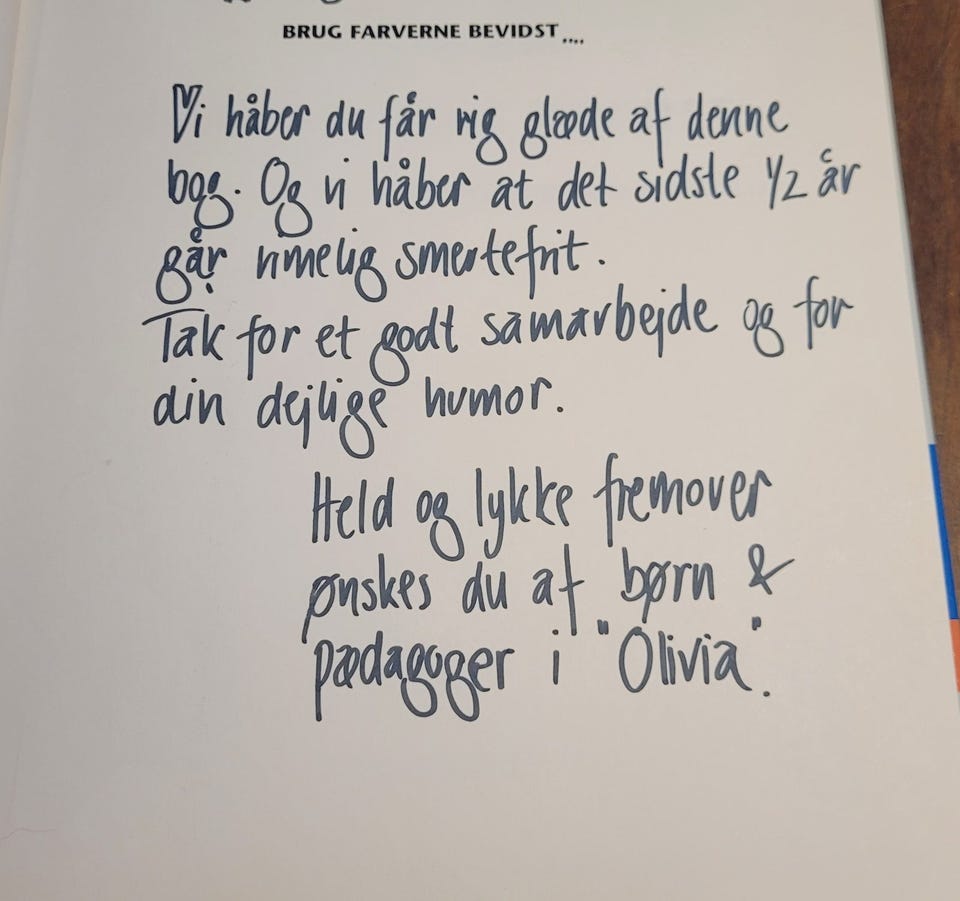 BRUG FARVERNE BEVIDST ....
Vi håber du får rig glæde af denne
bog. Og vi håber at det sidste 1/2 år
går rimelig smertefrit.
Tak for et godt samarbejde og for
din dejlige humor.
Held og lykke fremover
ønskes du af børn &
pædagoger i "Olivia".